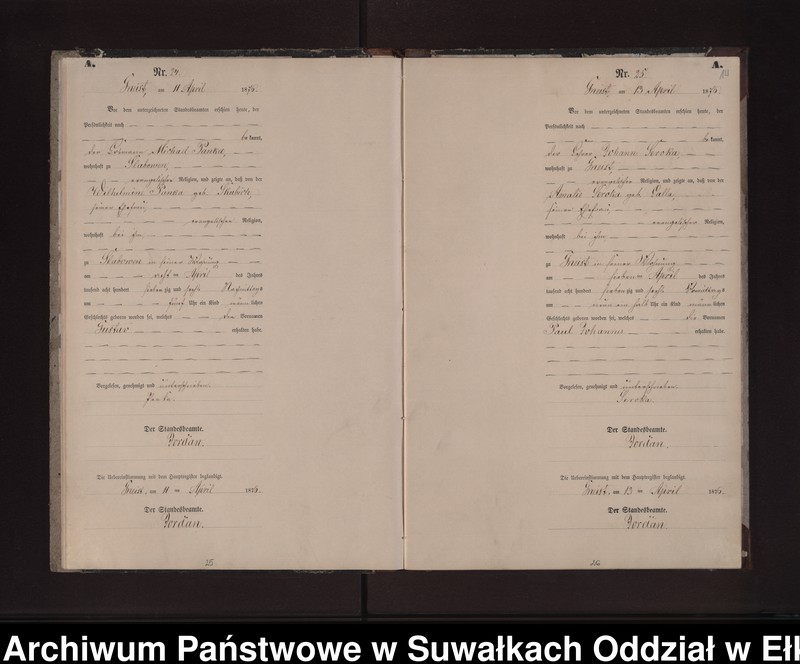 A.
Nr. 24.
am 11 April 1876.
Vor dem unterzeichneten Standesbeamten erschien heute, der
Persönlichkeit nach
be kannt,
der Michael Panka,
wohnhaft zu
evangelischer Religion, und zeigte an, daß von der
Wilhelmine Panka geb.
seiner Ehefrau,
evangelischer Religion,
wohnhaft bei ihm,
zu in seiner Wohnung
am acht = April des Jahres
tausend acht hundert sieben zig und sechs Nachmittags
um fünf Uhr ein Kind männ liches
Geschlechts geboren worden sei, welches den Vornamen
Gustav erhalten habe.
Vorgelesen, genehmigt und unterschrieben
Der Standesbeamte.
Jordan.
Die Uebereinstimmung mit dem Hauptregister beglaubigt.
am 11 = April 1876.
Der Standesbeamte.
Jordan.
25
A.
Nr. 25.
am 13 April 1876.
Vor dem unterzeichneten Standesbeamten erschien heute, der
Persönlichkeit nach
be kannt,
der Lehrer Johann Seroka,
wohnhaft zu
evangelischer Religion, und zeigte an, daß von der
Amalie Seroka geb. Lalla,
seiner Ehefrau
evangelischer Religion,
wohnhaft bei ihm,
zu in seiner Wohnung
am sieben = April des Jahres
tausend acht hundert sieben zig und sechs Vormittags
um neun ein halb Uhr ein Kind männ liches
Geschlechts geboren worden sei, welches die Vornamen
Paul Johannes erhalten habe.
Vorgelesen, genehmigt und unterschrieben
Seroka
Der Standesbeamte.
Jordan.
Die Uebereinstimmung mit dem Hauptregister beglaubigt.
am 13 = April 1876.
Der Standesbeamte.
Jordan
26
Archiwum Państwowe w Suwałkach Oddział w Ełk